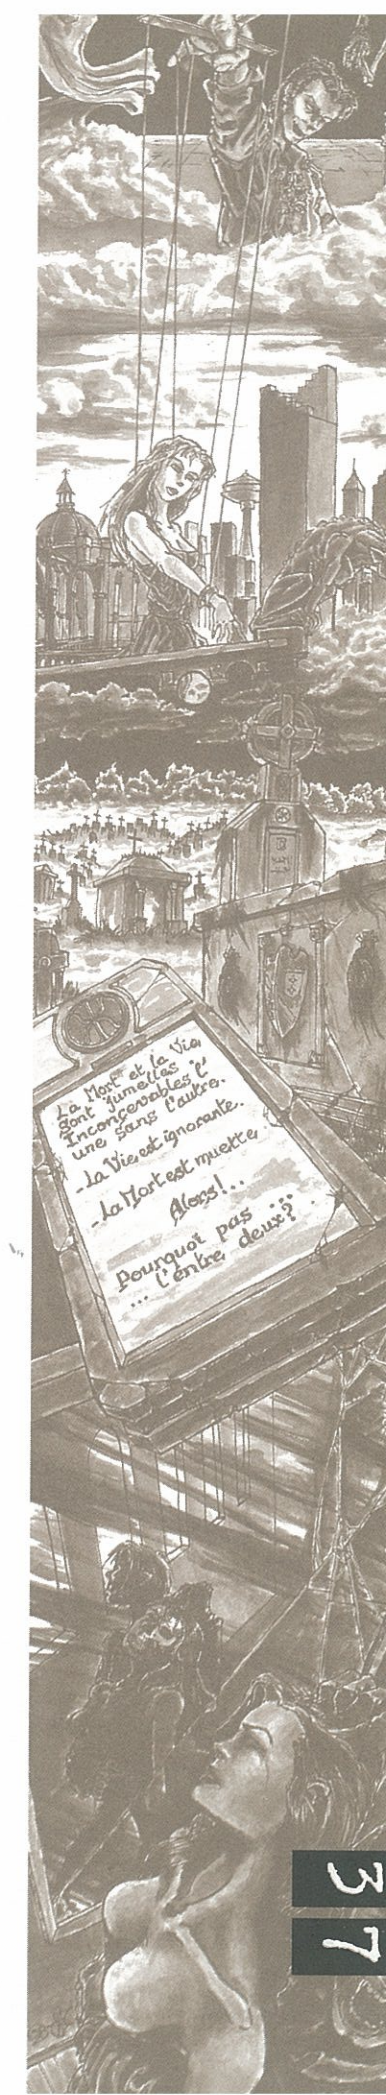 La Mort et la Vie
sont jumelles :
Inconcevables l'
une sans l'autre.
- la Vie est ignorante.
- la Mort est muette
Alors !..
Pourquoi pas ...
... l'entre deux?
37